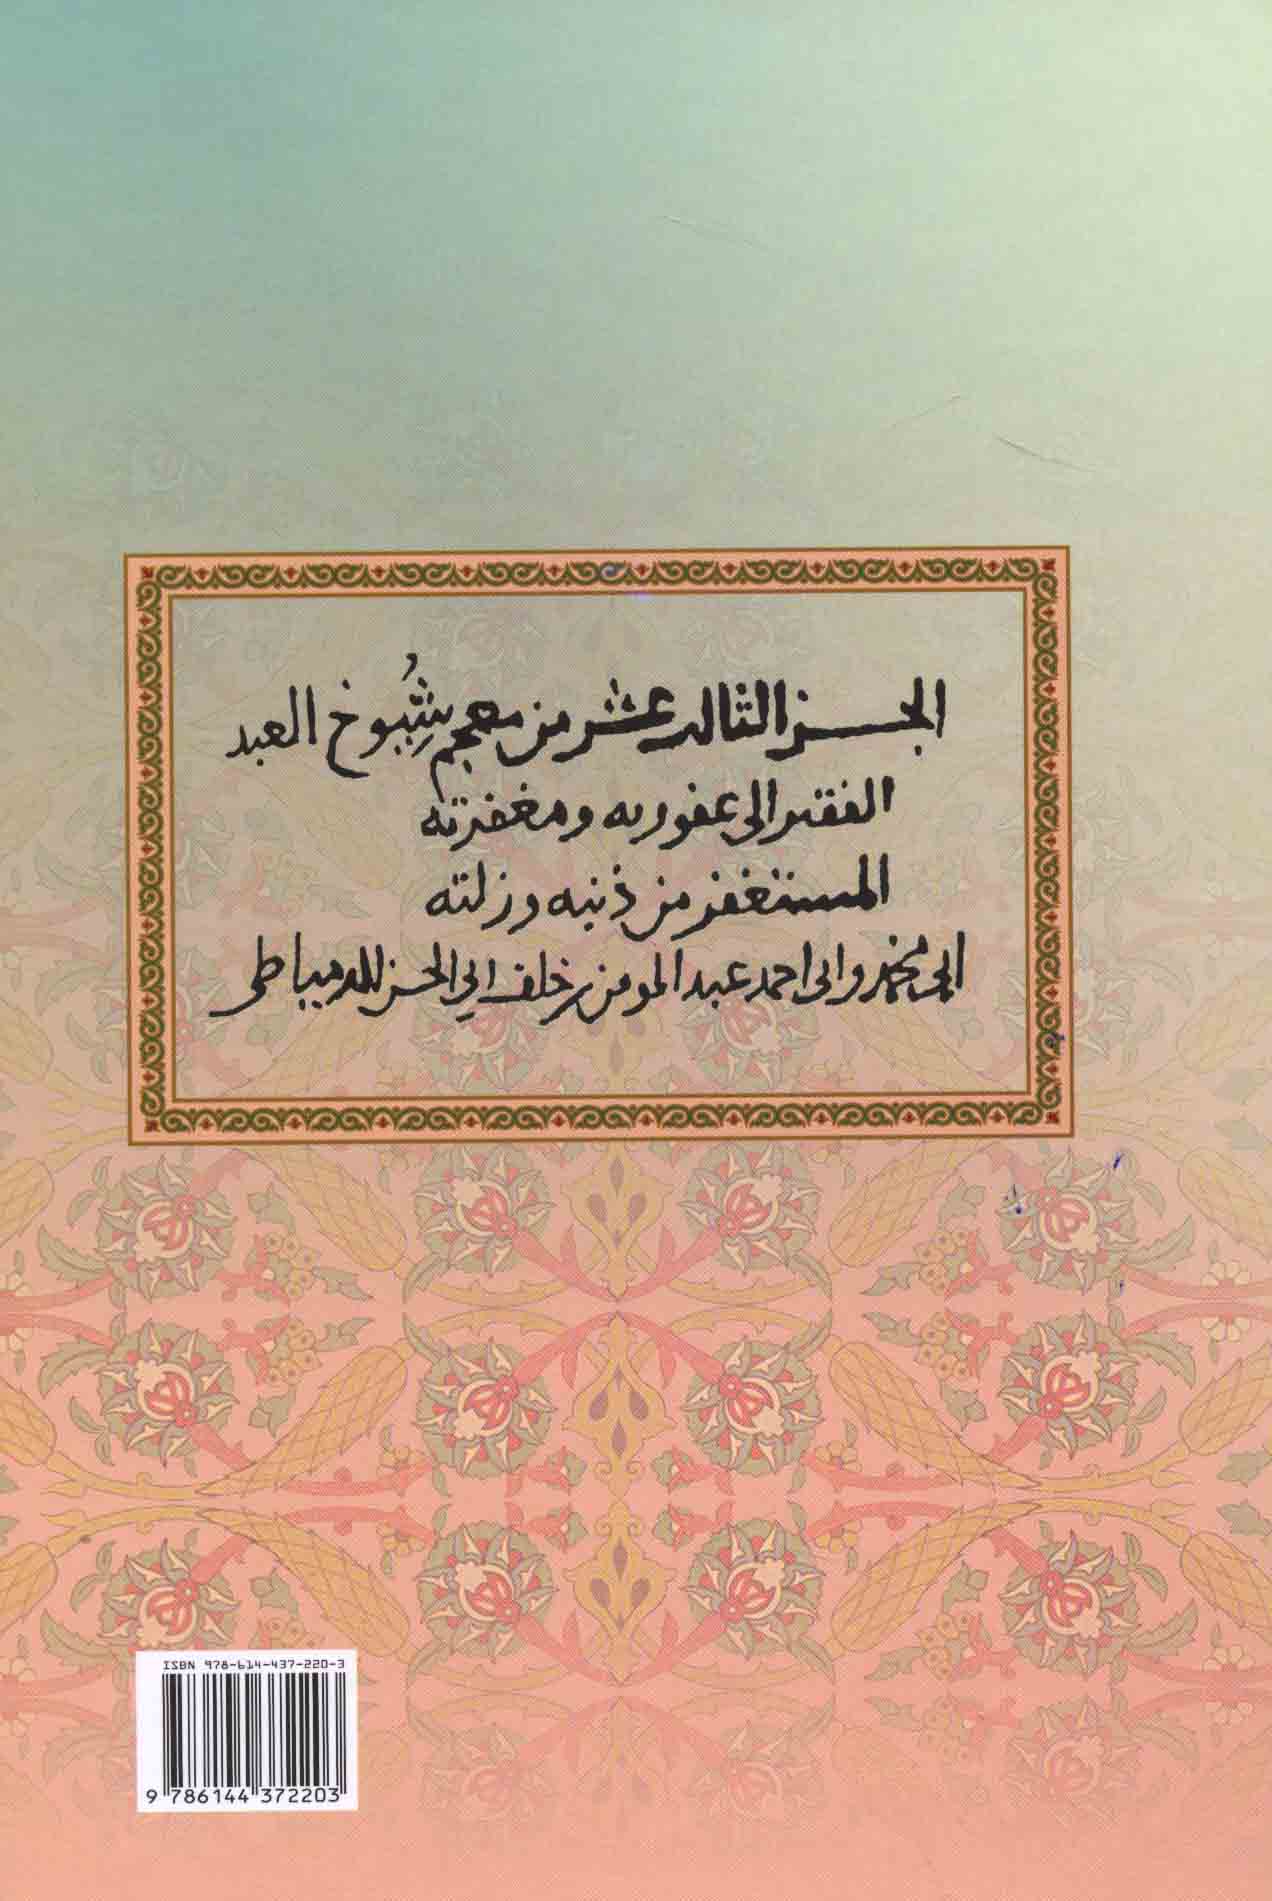 الجــز الثالث عشر من معجم شُيُوخ العبد
الفقير الى عفو ربه ومغفرته
المستغفر من ذنبه وزلته
ابى محمد وابى احمد عبد المومن بن خلف ابي الحسن الدمياطى
ISBN 978-614-437-220-3
9 786144 372203